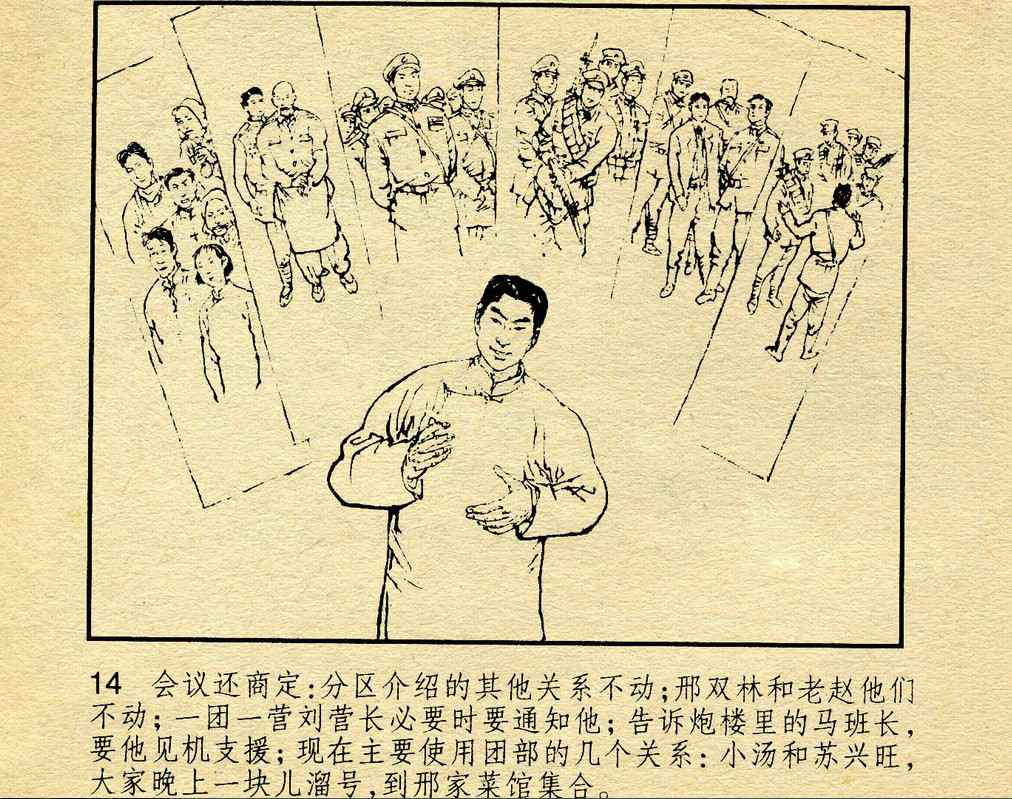 14 会议还商定:分区介绍的其他关系不动;邢双林和老赵他们
不动;一团一营刘营长必要时要通知他;告诉炮楼里的马班长,
要他见机支援;现在主要使用团部的几个关系:小汤和苏兴旺,
大家晚上一块儿溜号,到邢家菜馆集合。